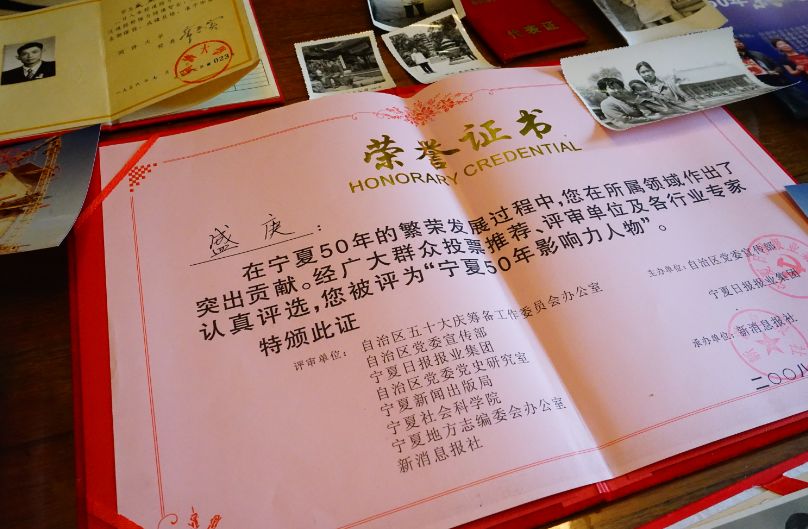 023
代表证
荣誉证书
HONORARY CREDENTIAL
盛庚：
在宁夏50年的繁荣发展过程中，您在所属领域作出了
突出贡献。经广大群众投票推荐、评审单位及各行业专家
认真评选，您被评为“宁夏50年影响力人物”。
特颁此证
评审单位：自治区五十大庆筹备工作委员会办公室
自治区党委宣传部
宁夏日报报业集团
自治区党委党史研究室
宁夏新闻出版局
宁夏社会科学院
宁夏地方志编委会办公室
新消息报社
主办单位：自治区党委宣传部
宁夏日报报业集团
承办单位：新消息报社
二〇〇八